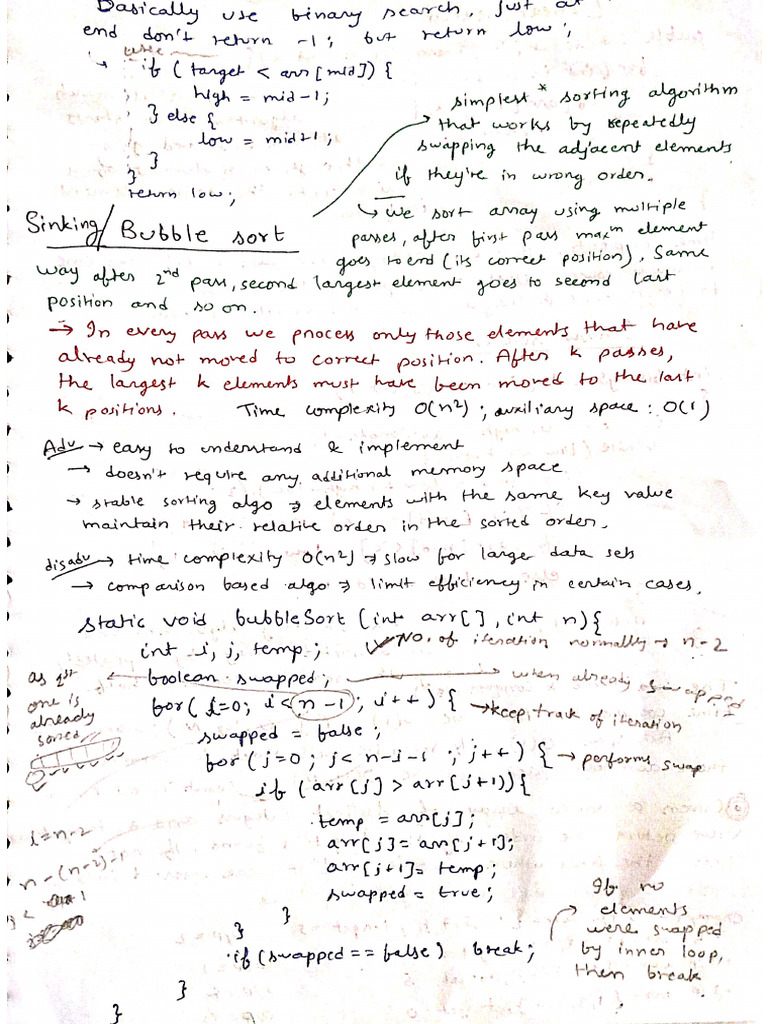 Basically use binary search, just at
end don't return -1; but return low;
if (target < arr[mid]) {
high = mid-1;
} else {
low = mid+1;
}
}
return low;
simplest * sorting algorithm
that works by repeatedly
swapping the adjacent elements
if they're in wrong order.
Sinking/Bubble sort
↳ we sort array using multiple
passes, after first pass maxm element
goes to end (its correct position). Same
way after 2nd pass, second largest element goes to second last
position and so on.
→ In every pass we process only those elements that have
already not moved to correct position. After k passes,
the largest k elements must have been moved to the last
k positions. Time complexity O(n²); auxiliary space: O(1)
Adv → easy to understand & implement
→ doesn't require any additional memory space
→ stable sorting algo ⇒ elements with the same key value
maintain their relative order in the sorted order.
disadv → time complexity O(n²) ⇒ slow for large data sets
→ comparison based algo ⇒ limit efficiency in certain cases.
static void bubbleSort (int arr[], int n){
int i, j, temp; No. of iteration normally → n-2
boolean swapped; when already swapped
for( i=0; i<n-1; i++) { → keep track of iteration
as 1st
one is
already
sorted
swapped = false;
for (j=0; j< n-i-1 ; j++) { → performs swap
if (arr[j] > arr[j+1)){
temp = arr[j];
arr[j]= arr[j+1];
arr[j+1]= temp;
swapped = true;
}
}
i=n-2
n-(n-2)-1
1
if (swapped == false) break;
If no
elements
were swapped
by inner loop,
then break
}
}